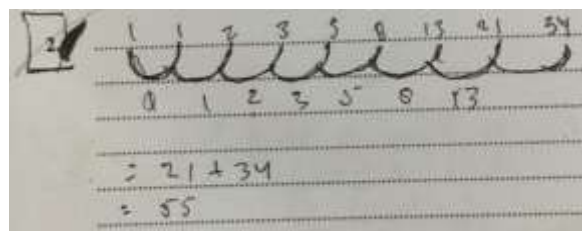 2.
1 1 2 3 5 8 13 21 34
0 1 2 3 5 8 13
= 21 + 34
= 55